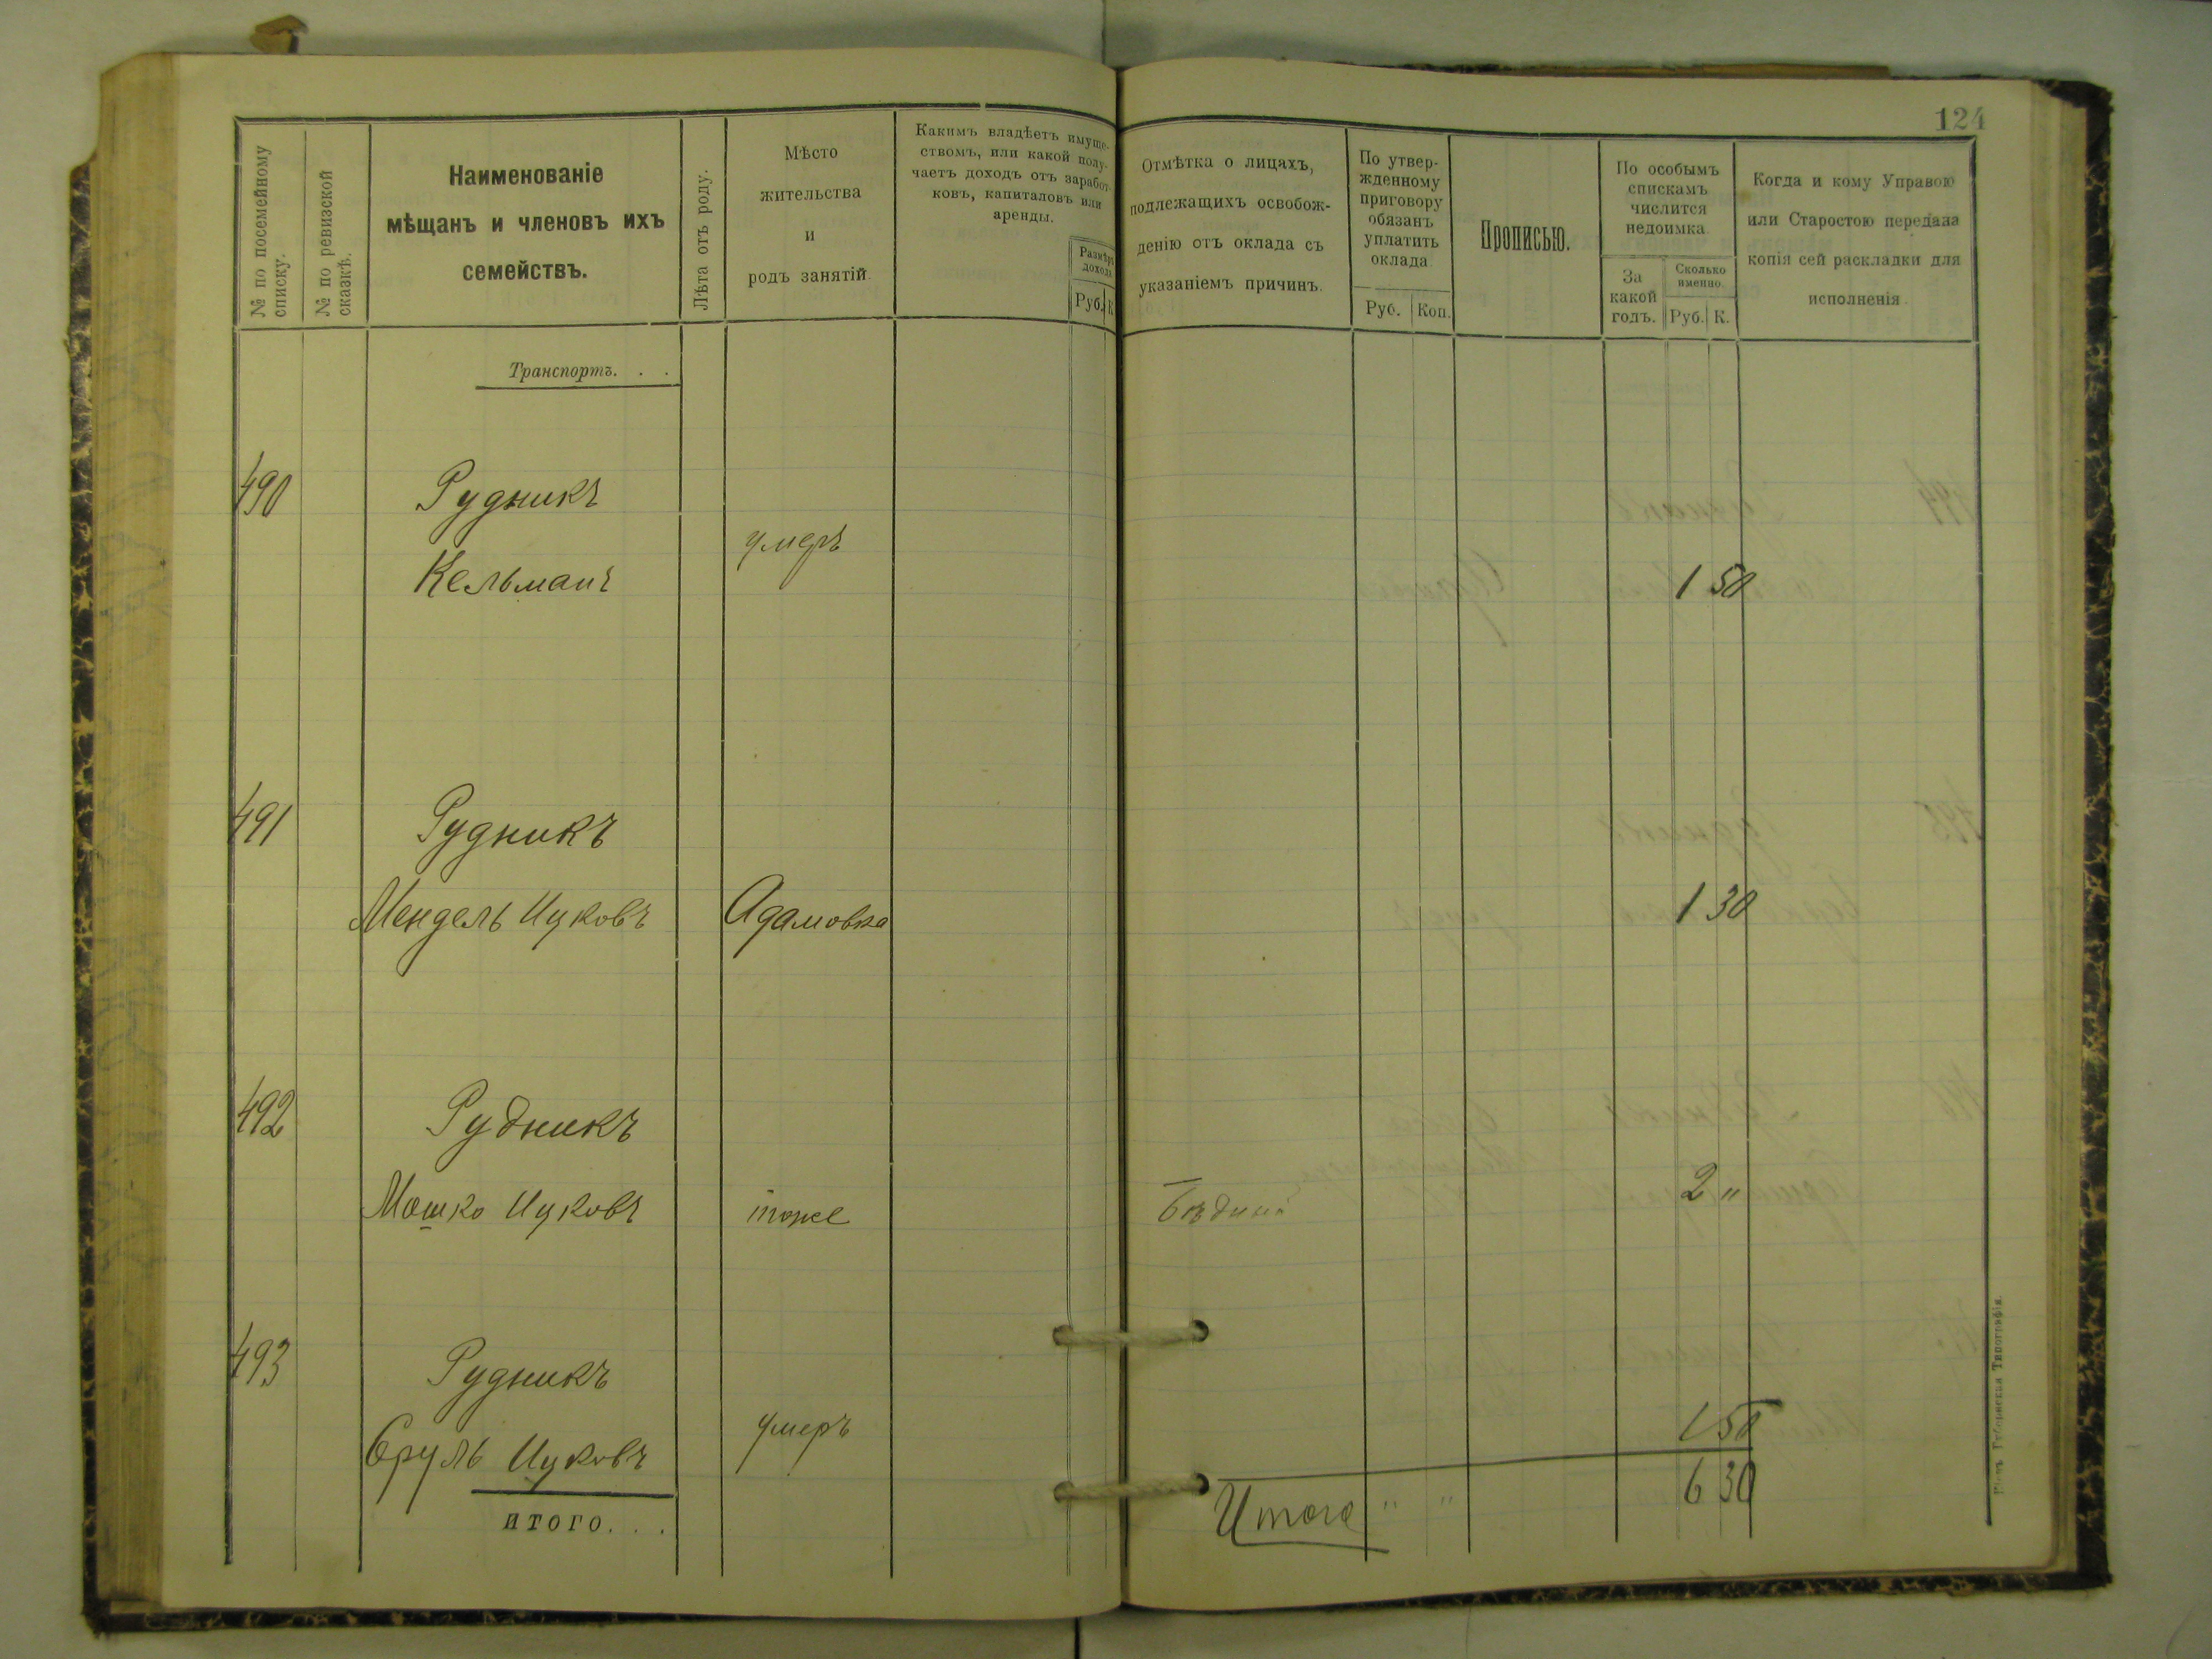 124
№ по посемейному
списку.
№ по ревизской
сказкѣ.
Наименованіе
мѣщанъ и членовъ ихъ
семействъ.
Лѣта отъ роду.
Мѣсто
жительства
и
родъ занятій.
Какимъ владѣетъ имуще-
ствомъ, или какой полу-
чаетъ доходъ отъ заработ-
ковъ, капиталовъ или
аренды.
Размѣръ
дохода
Руб. К
Отмѣтка о лицахъ,
подлежащихъ освобож-
денію отъ оклада съ
указаніемъ причинъ.
По утвер-
жденному
приговору
обязанъ
уплатить
оклада
Руб. Коп.
Прописью.
По особымъ
спискамъ
числится
недоимка
За
какой
годъ.
Сколько
именно
Руб. К.
Когда и кому Управою
или Старостою передана
копія сей раскладки для
исполненія.
Транспортъ. . .
490 Рудникъ
умеръ
Кельманъ 1 50
491 Рудникъ
Мендель Ицковъ Адамовка 1 30
492 Рудникъ
Мошко Ицковъ тоже бѣдный 2 "
493 Рудникъ
Сруль Ицковъ умеръ 1 50
итого. . .
Итого " " 6 30